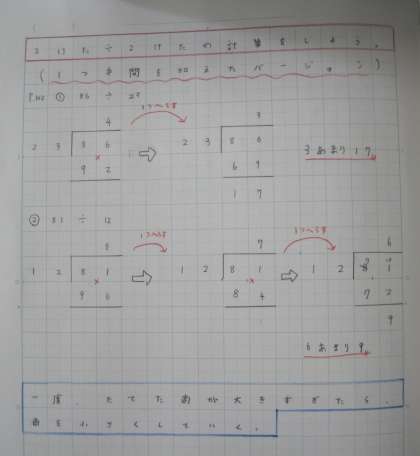 2けた÷2けたの計算をしよう。
(1つき問を加えたバージョン)
P.112 ① 86 ÷ 23
4 1つへらす 3
23 86 ⇨ 23 86 3あまり17
× 92 69
17
② 81 ÷ 12
8 1つへらす 7 1つへらす 6
12 81 ⇨ 12 81 ⇨ 12 81
× 96 × 84 72
9
6あまり9
一度、たてた商が大きすぎたら、
商を小さくしていく。